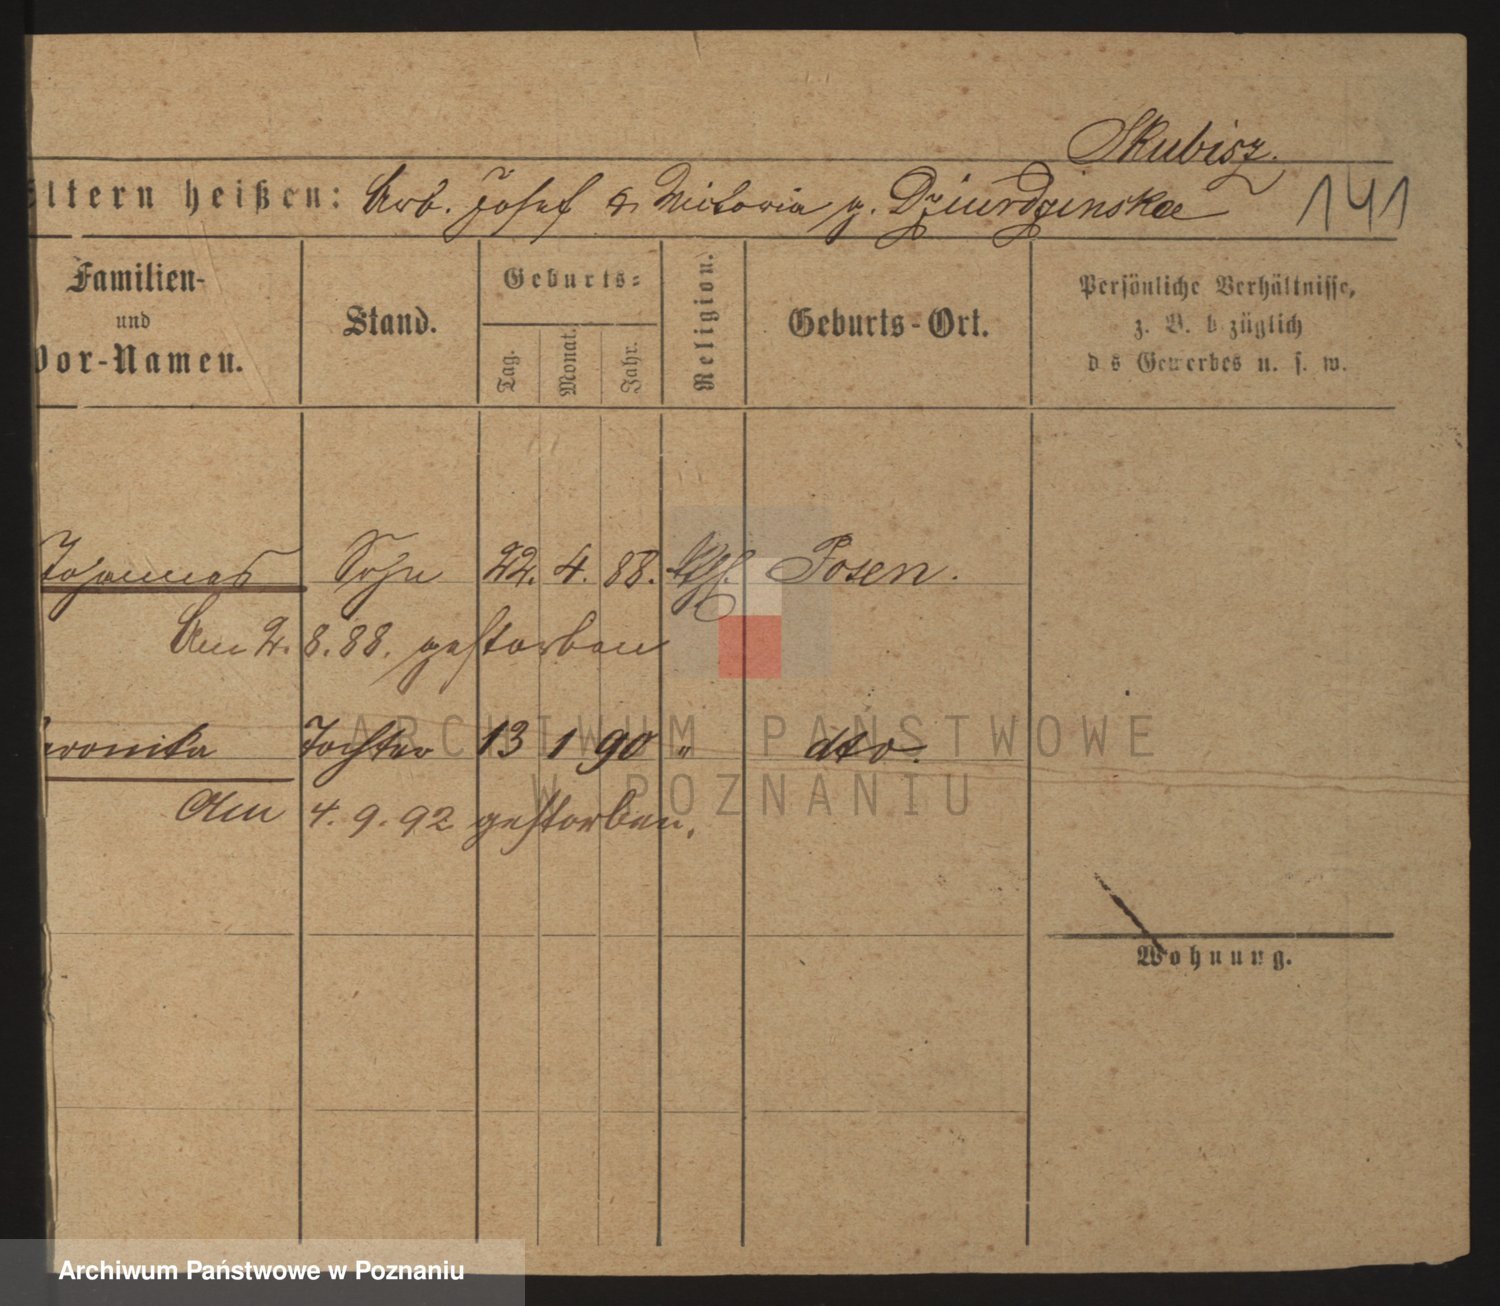 Skubisz.
Eltern heißen: Arb. Josef & Victoria g. Dziurdzinska
141
Familien-
und
Vor-Namen.
Stand.
Geburts-
Tag.
Monat.
Jahr.
Religion.
Geburts-Ort.
Persönliche Verhältnisse,
z. B. bezüglich
des Gewerbes u. s. w.
Johannes Sohn 22. 4. 88. kth. Posen.
Am 2. 8. 88. gestorben
eronika Tochter 13 1 90 " dto.
Am 4. 9. 92 gestorben.
Wohnung.
ARCHIWUM PAŃSTWOWE
W POZNANIU
Archiwum Państwowe w Poznaniu